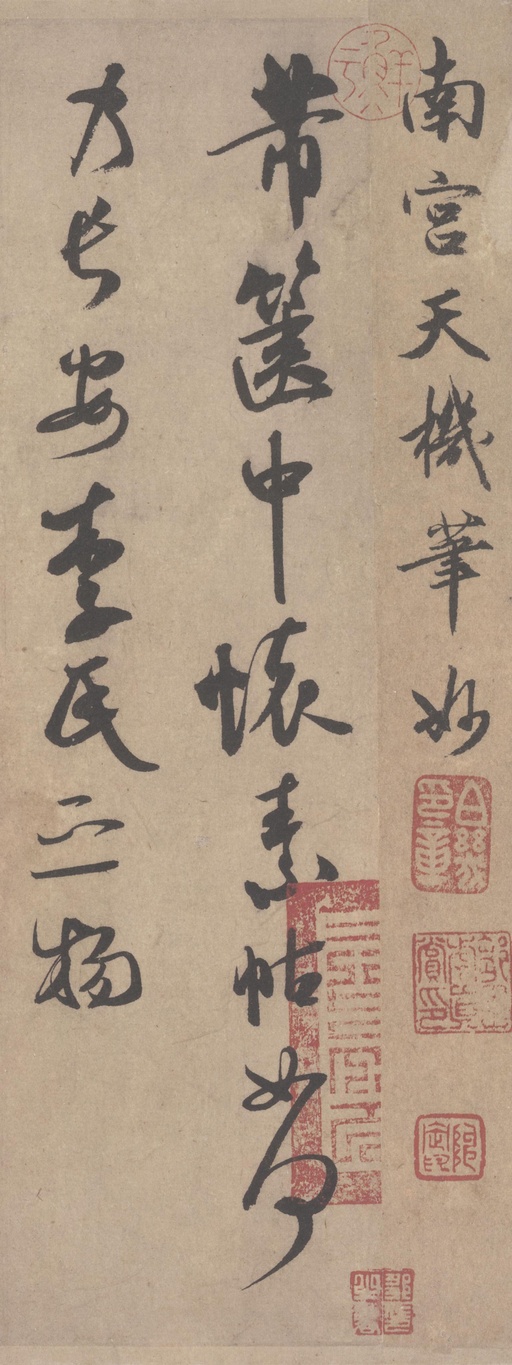 南宮天機筆妙
芾篋中懷素帖如何
乃長安李氏之物